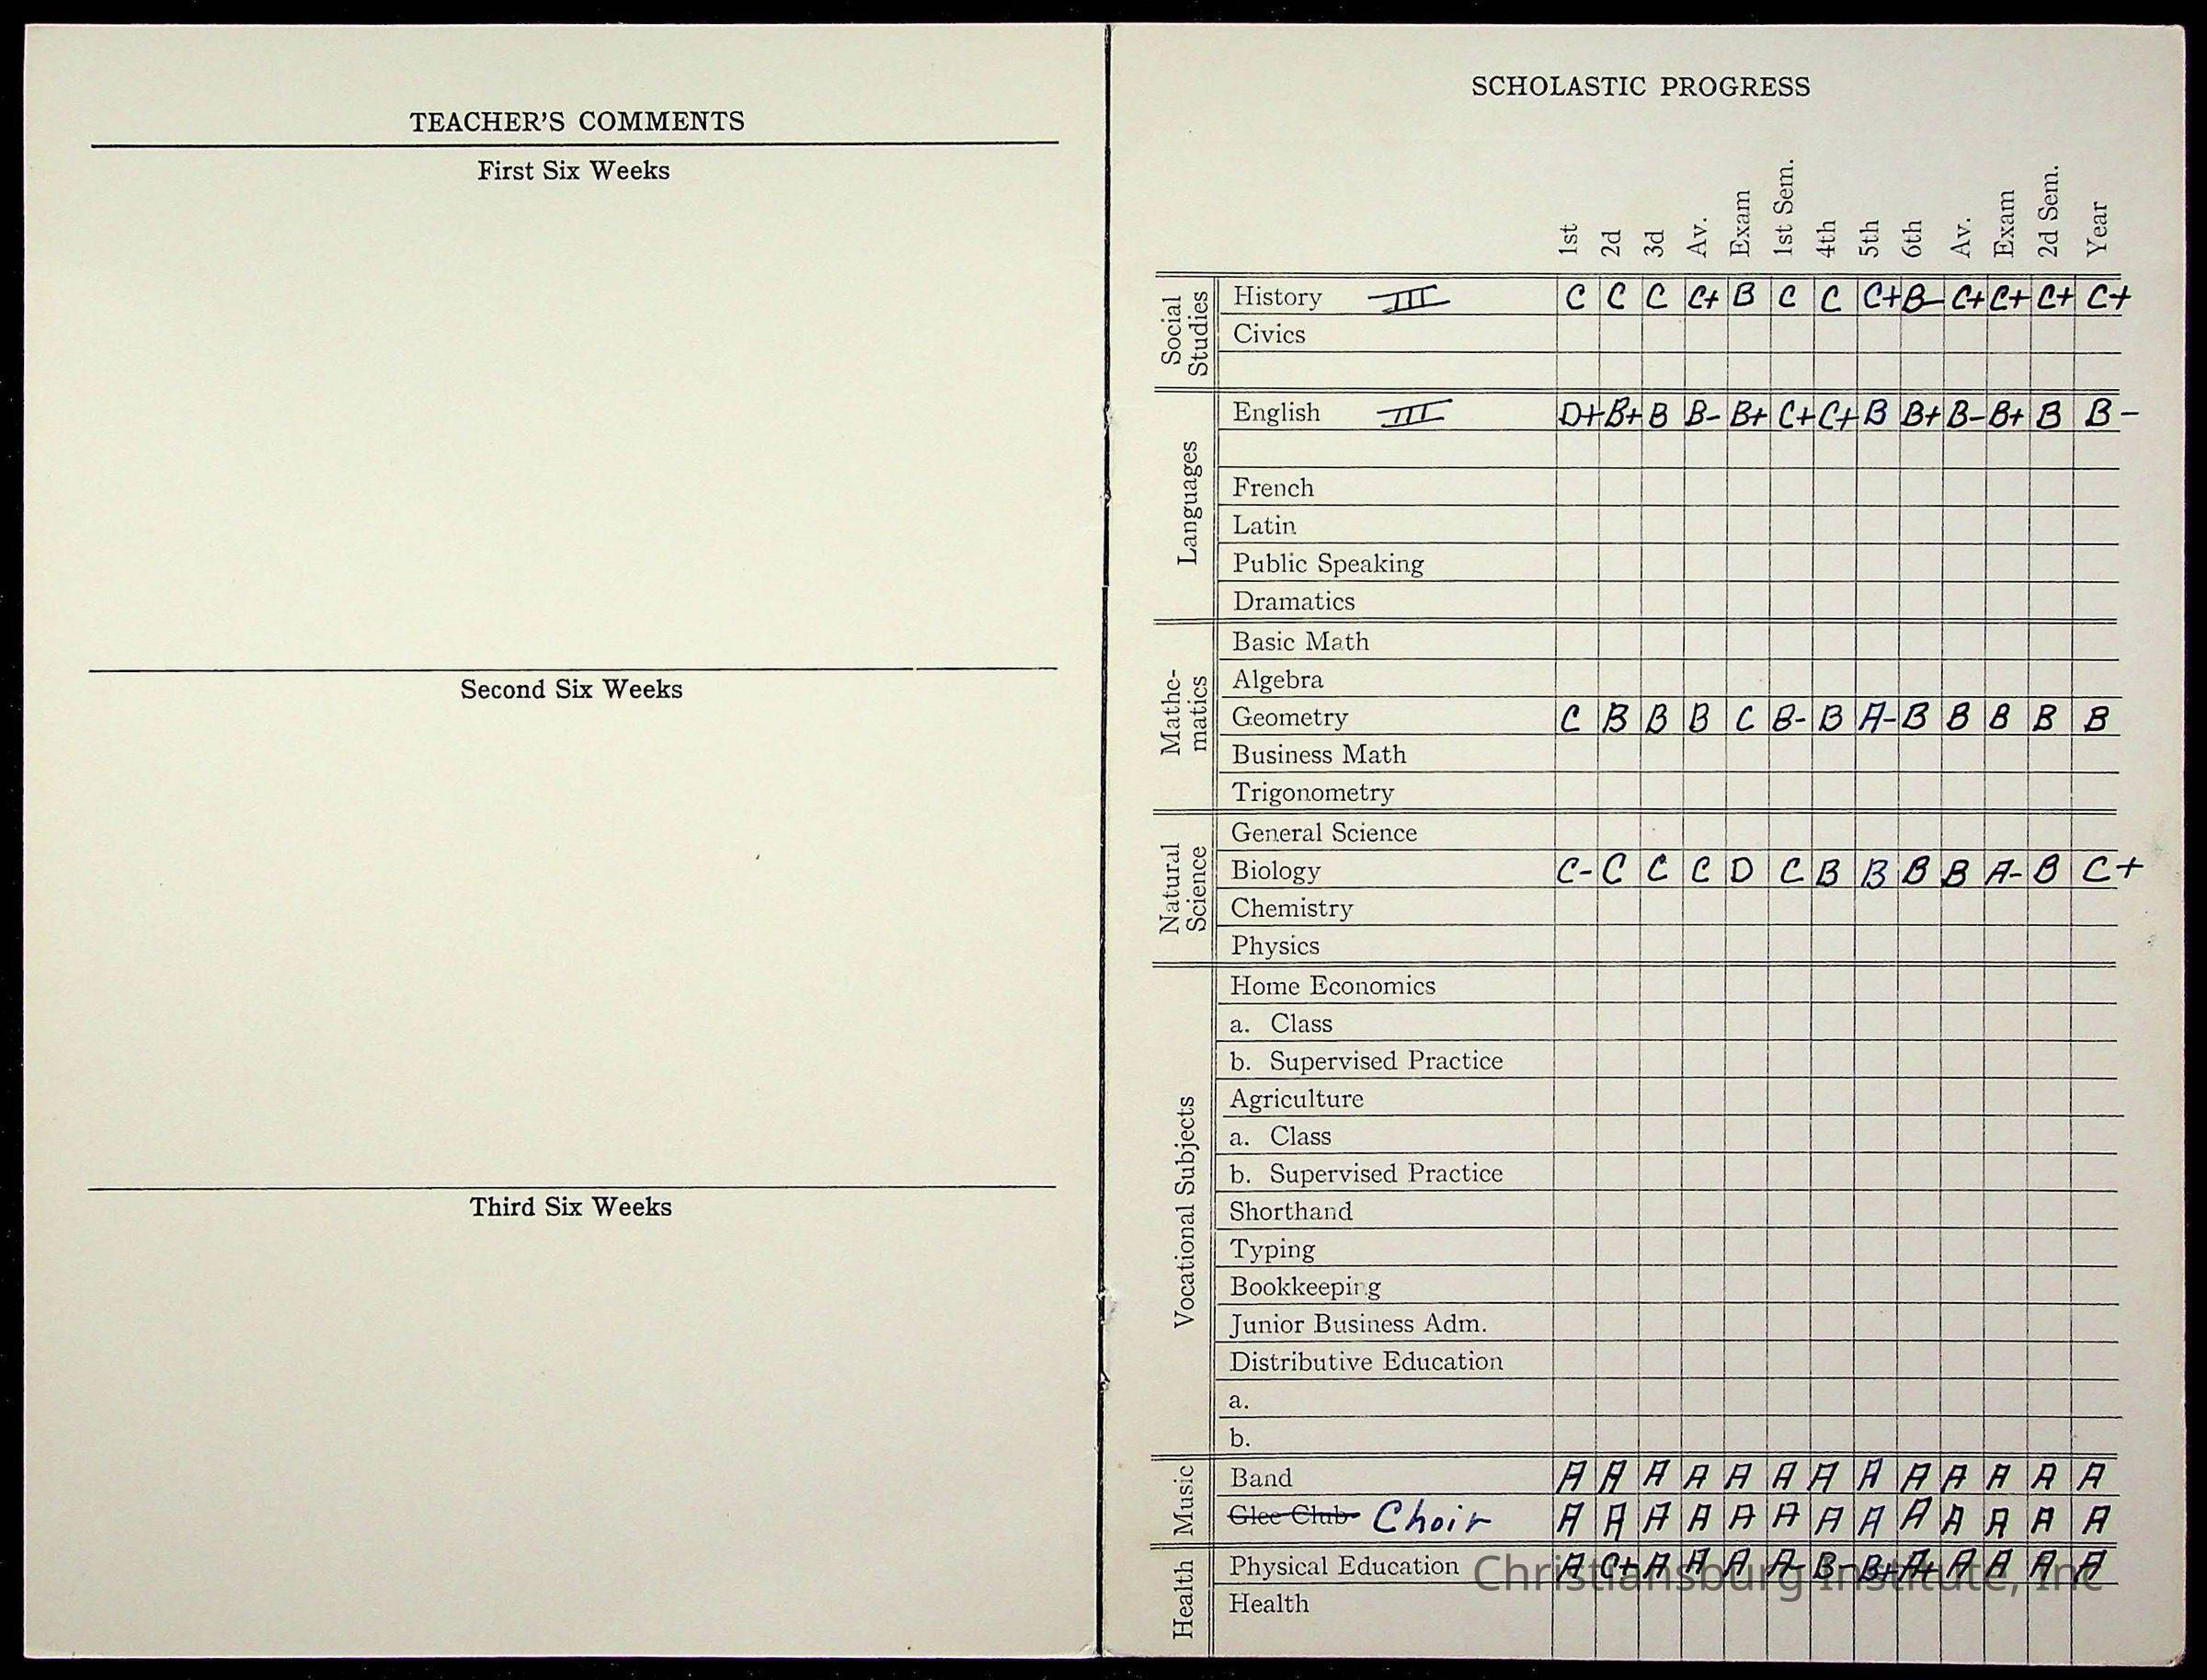 TEACHER'S COMMENTS
First Six Weeks
Second Six Weeks
Third Six Weeks
SCHOLASTIC PROGRESS
1st 2d 3d Av. Exam 1st Sem. 4th 5th 6th Av. Exam 2d Sem. Year
Social Studies
History III C C C C+ B C C C+ B- C+ C+ C+ C+
Civics
Languages
English III D+ B+ B B- B+ C+ C+ B B+ B- B+ B B-
French
Latin
Public Speaking
Dramatics
Mathe-
matics
Basic Math
Algebra
Geometry C B B B C B- B A- B B B B B
Business Math
Trigonometry
Natural
Science
General Science
Biology C- C C C D C B B B B A- B C+
Chemistry
Physics
Vocational Subjects
Home Economics
a. Class
b. Supervised Practice
Agriculture
a. Class
b. Supervised Practice
Shorthand
Typing
Bookkeeping
Junior Business Adm.
Distributive Education
a.
b.
Music
Band A A A A A A A A A A A A A
Glee Club Choir A A A A A A A A A A A A A
Health
Physical Education A C+ A A A A- B- B+ A+ A A A A
Health
Christiansburg Institute, Inc